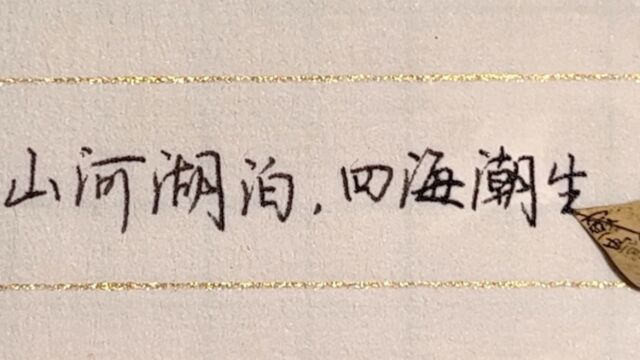 山河湖泊,四海潮生